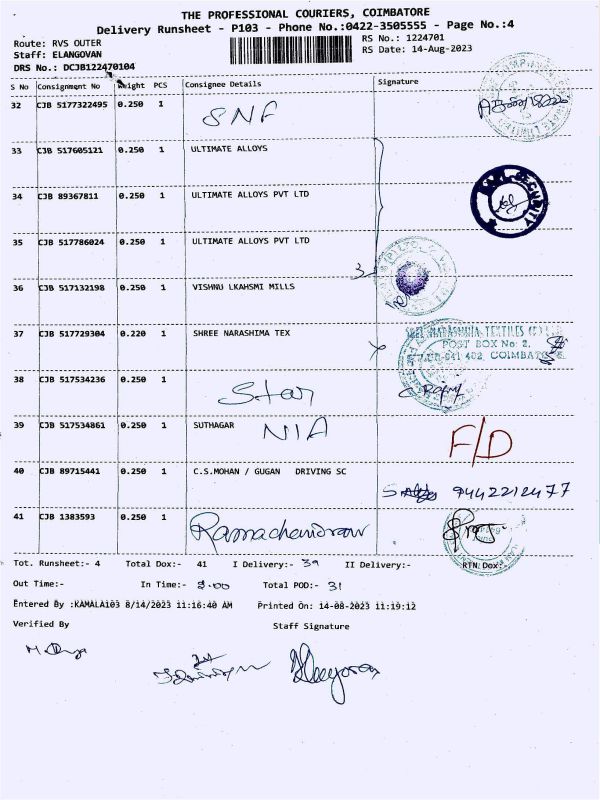 THE PROFESSIONAL COURIERS, COIMBATORE
Delivery Runsheet - P103 - Phone No.:0422-3505555 - Page No.:4
Route: RVS OUTER
RS No.: 1224701
Staff: ELANGOVAN
RS Date: 14-Aug-2023
DRS No.: DCJB122470104
S No Consignment No Weight PCS Consignee Details Signature
32 CJB 5177322495 0.250 1 SNF
33 CJB 517605121 0.250 1 ULTIMATE ALLOYS
34 CJB 89367811 0.250 1 ULTIMATE ALLOYS PVT LTD
SECURITY
35 CJB 517786024 0.250 1 ULTIMATE ALLOYS PVT LTD
3
36 CJB 517132198 0.250 1 VISHNU LKAHSMI MILLS
37 CJB 517729304 0.220 1 SHREE NARASHIMA TEX
SHRI NARASIMHA TEXTILES (P) LTD
POST BOX No: 2,
641 402, COIMBATORE.
38 CJB 517534236 0.250 1 Star
39 CJB 517534861 0.250 1 SUTHAGAR NIA F/D
40 CJB 89715441 0.250 1 C.S.MOHAN / GUGAN DRIVING SC
9442212477
41 CJB 1383593 0.250 1 Ramachandran
Tot. Runsheet:- 4 Total Dox:- 41 I Delivery:- 39 II Delivery:- RTN Dox:-
Out Time:- In Time:- 3.00 Total POD:- 31
Entered By :KAMALA103 8/14/2023 11:16:40 AM Printed On: 14-08-2023 11:19:12
Verified By Staff Signature